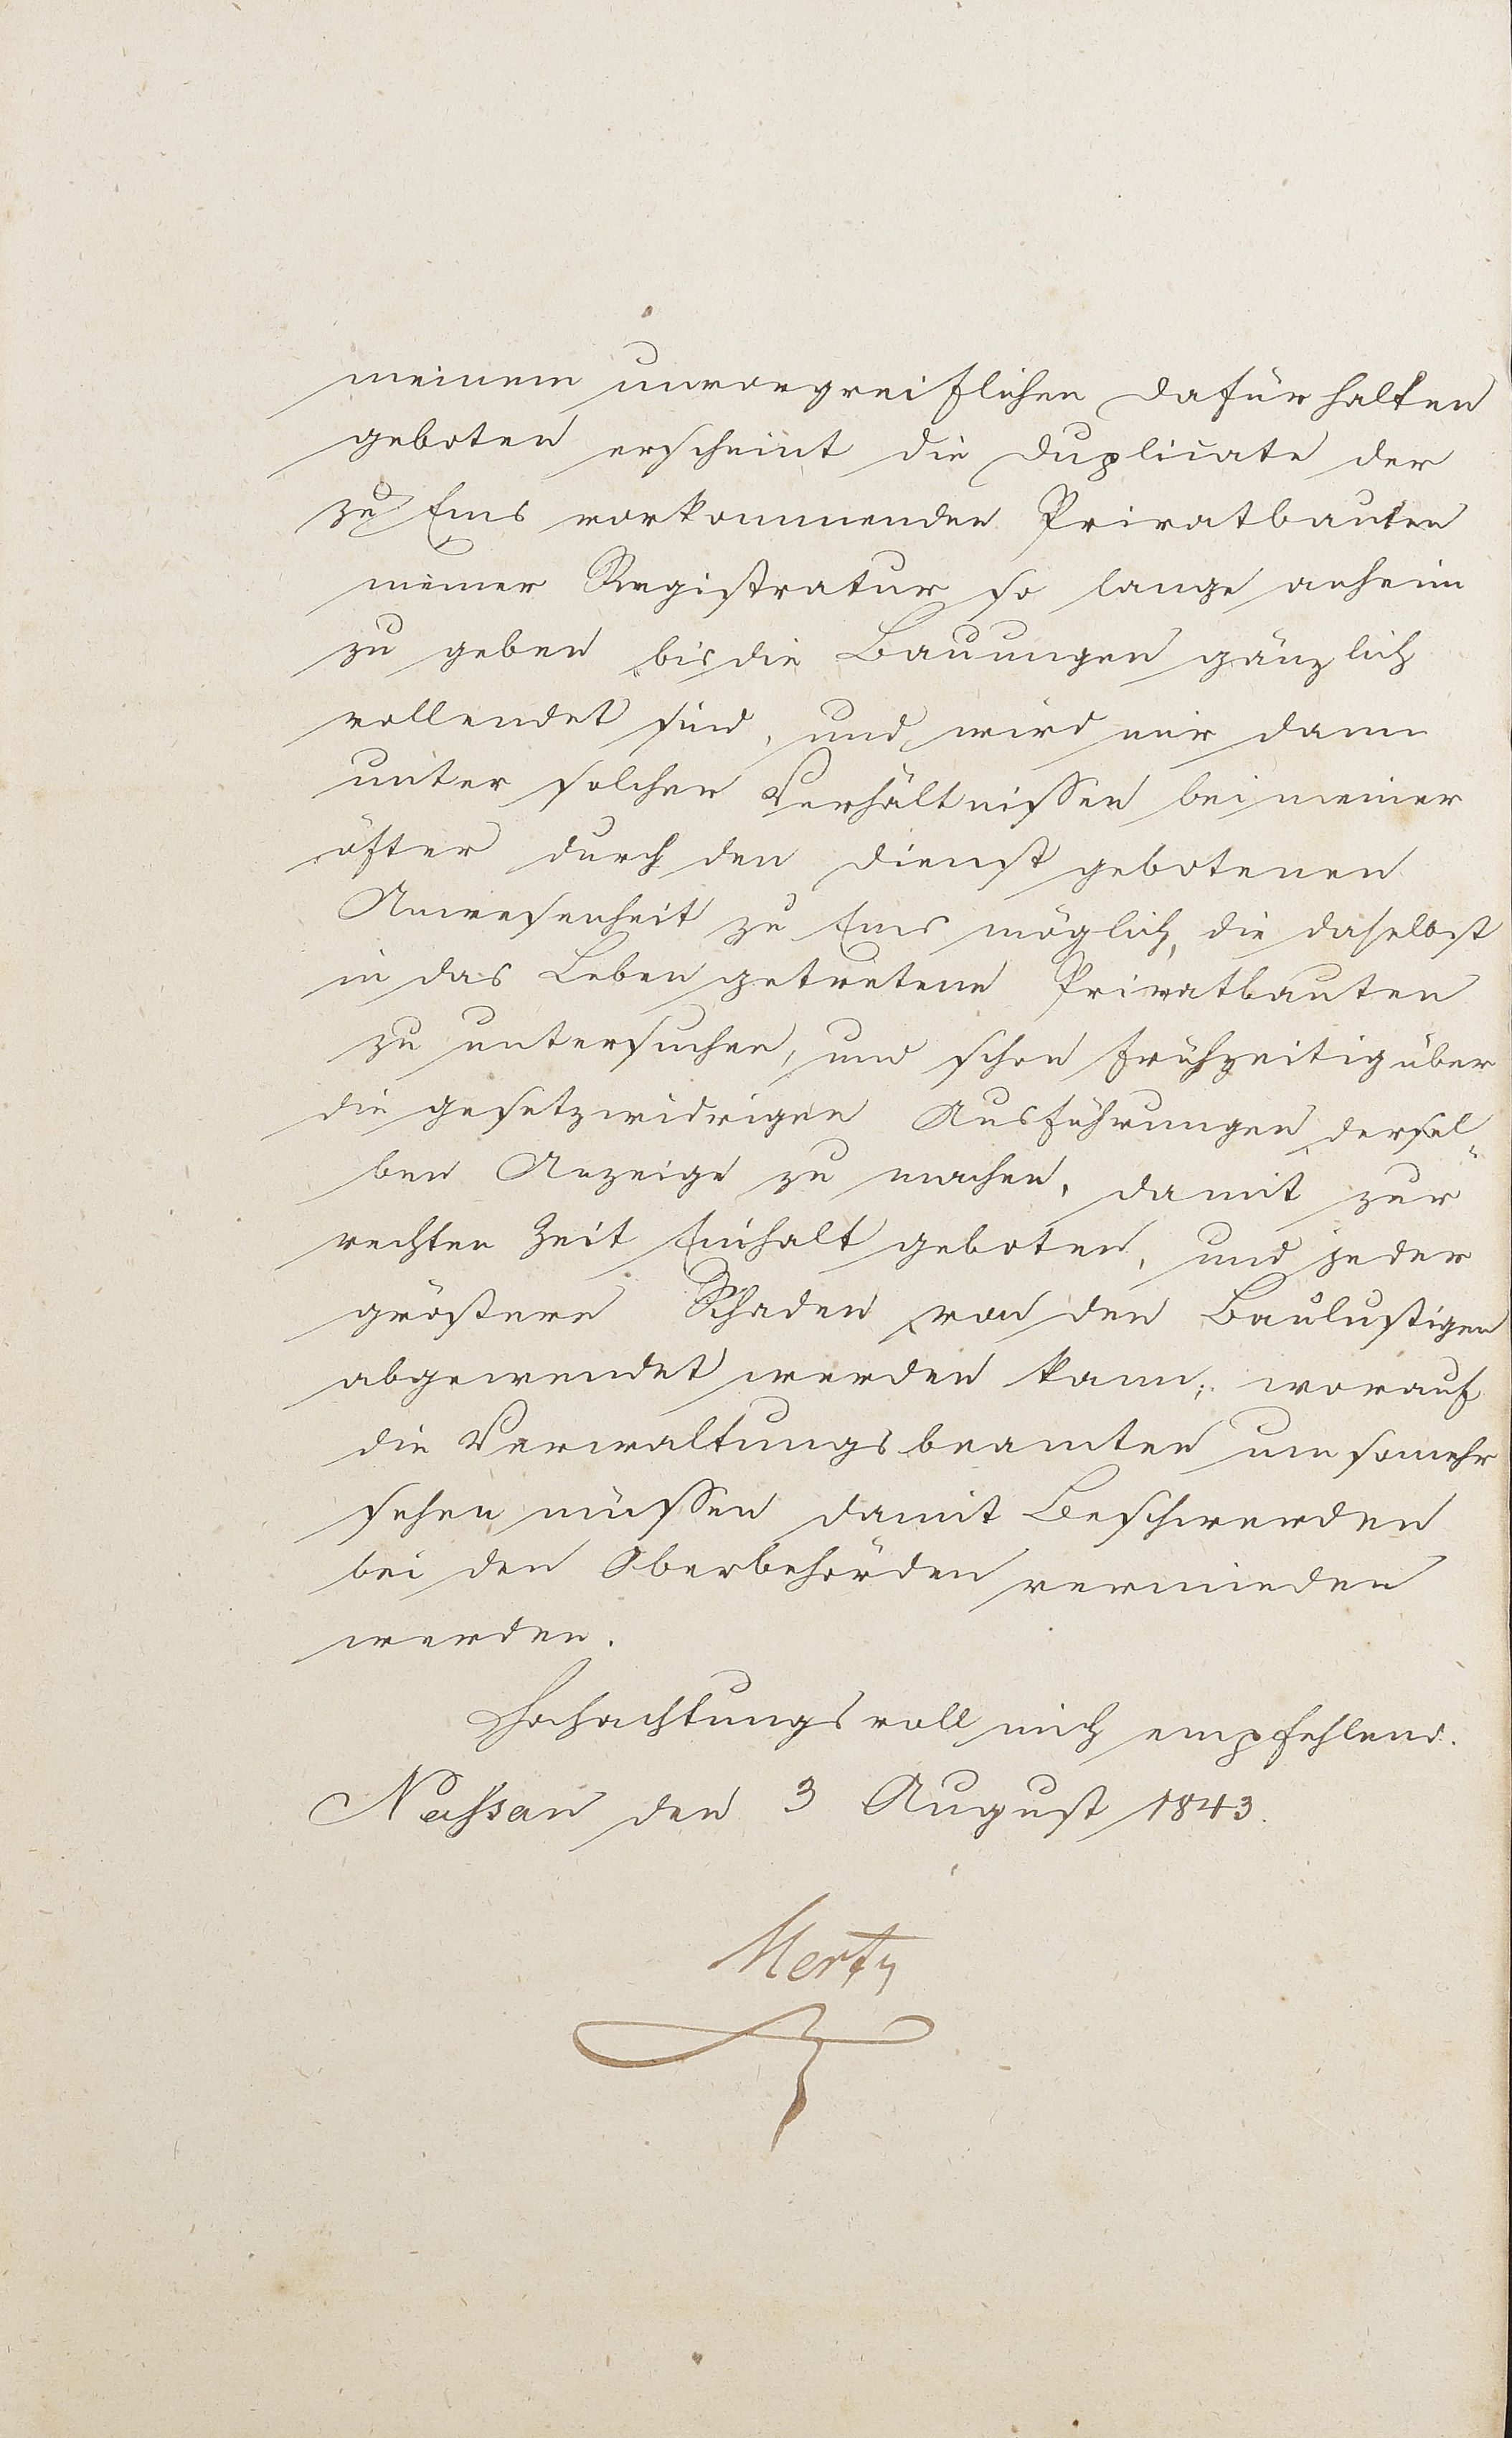 meinem unvorgreiflichen dafürhalten
geboten erscheint die Duplicate der
zu Ems vorkommenden Privatbauten
meiner Registratur so lange anheim
zu geben bis die Bauungen gänzlich
vollendet sind, und wird mir dann
unter solchen Verhältnissen bei meiner
öfter durch den Dienst gebotenen
Anwesenheit zu Ems möglich, die daselbst
in das Leben getretene Privatbauten
zu untersuchen, und schon frühzeitig über
die gesetzwidrigen Ausführungen dersel„
ben Anzeige zu machen, damit zur
rechten Zeit Einhalt geboten, und jeder
größere Schaden von den Baulustigen
abgewendet werden kann; worauf
die Verwaltungsbeamten um somehr
sehen müssen damit Beschwerden
bei den Oberbehörden vermieden
werden.
Hochachtungsvoll mich empfehlend.
Nassau den 3 August 1843.
Mertz